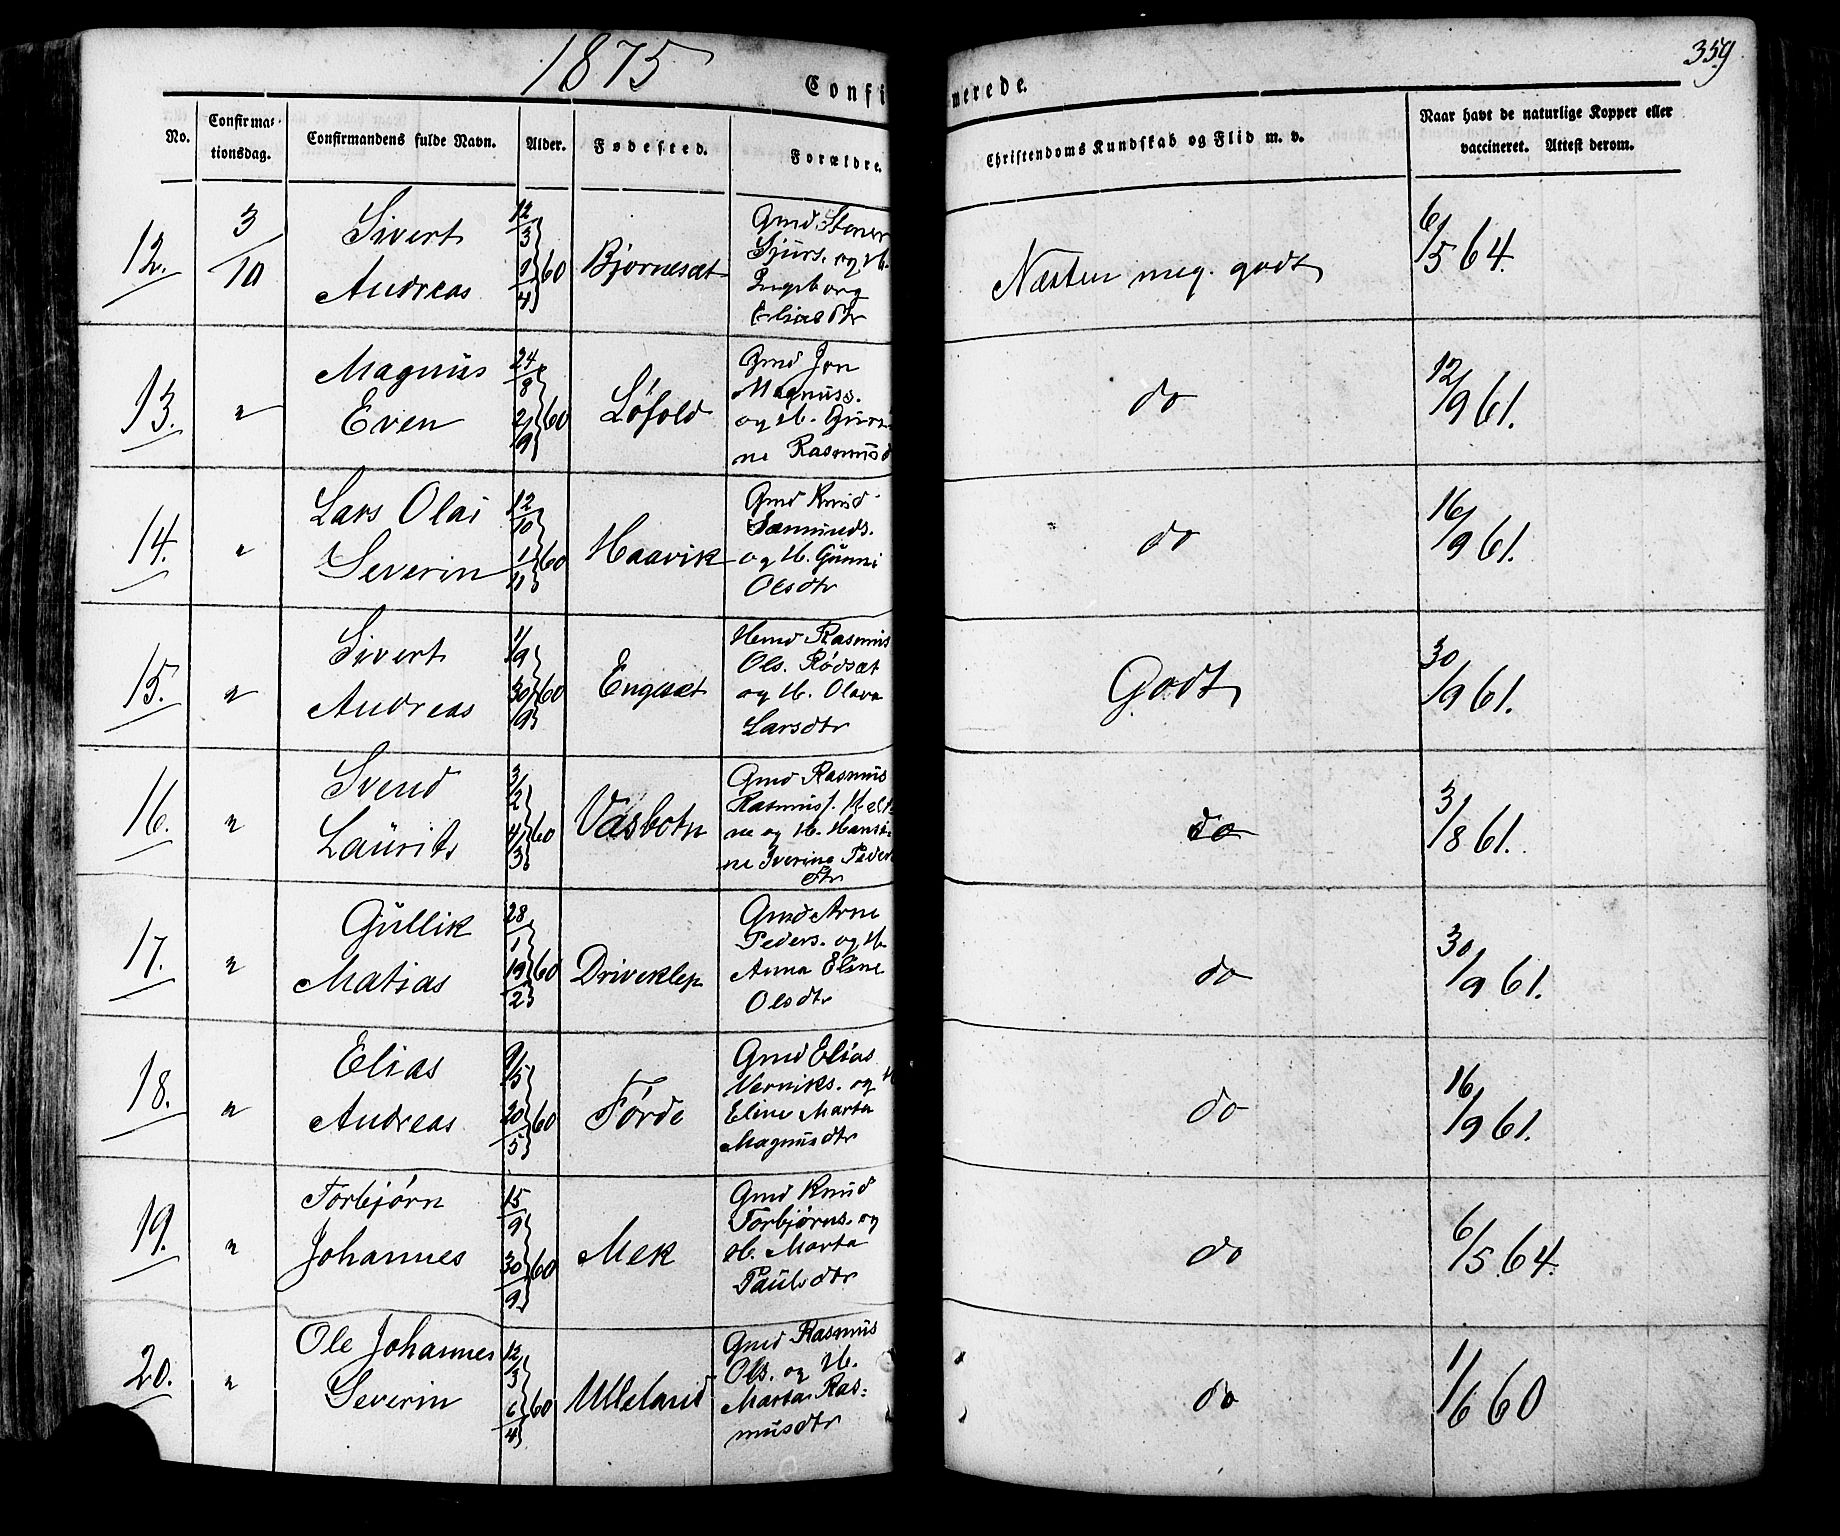 1875
359
Confirmerede.
No.
Confirma-
tionsdag.
Confirmandens fulde Navn.
Alder.
Fødested.
Forældre.
Christendoms Kundskab og Flid m. v.
Naar havt de naturlige Kopper eller
vaccineret. Attest derom.
12.
3/10
Sivert
Andreas
12/3
1/4 60
Bjørnesæt
Gmd. Stener
Sjurs. og H.
Ingeborg
Eliasdtr
Næsten meg. godt
6/5 64.
13.
"
Magnus
Even
24/8
2/9 60
Løfold
Gmd Jon
Magnuss.
og H. Guri-
ne Rasmusd
do
12/9 61.
14.
"
Lars Olai
Severin
12/10
1/11 60
Haavik
Gmd Knud
Sæmunds.
og H. Gunni
Olsdtr
do
16/9 61.
15.
"
Sivert
Andreas
1/9
30/9 60
Engesæt
Hmd Rasmus
Ols. Rødsæt
og H. Olava
Larsdtr
Godt
30/9 61.
16.
"
Svend
Laurits
3/2
4/3 60
Vasbotn
Gmd Rasmus
Rasmuss.
ne og H. Hansi-
ne Iverine Peders
dtr
do
3/8 61.
17.
"
Gullik
Matias
28/1
19/2 60
Driveklep
Gmd Arne
Peders. og H.
Anna Eline
Olsdtr
do
30/9 61.
18.
"
Elias
Andreas
9/5
20/5 60
Førde
Gmd Elias
Verniks. og H
Eline Marta
Magnusdtr
do
16/9 61.
19.
"
Torbjørn
Johannes
15/9
30/9 60
Mek
Gmd Knud
Torbjørns. og
H. Marta
Paulsdtr
do
6/5 64.
20.
"
Ole Johannes
Severin
12/3
6/4 60
Ulleland
Gmd Rasmus
Ols. og H.
Marta Ras-
musdtr
do
1/6 60